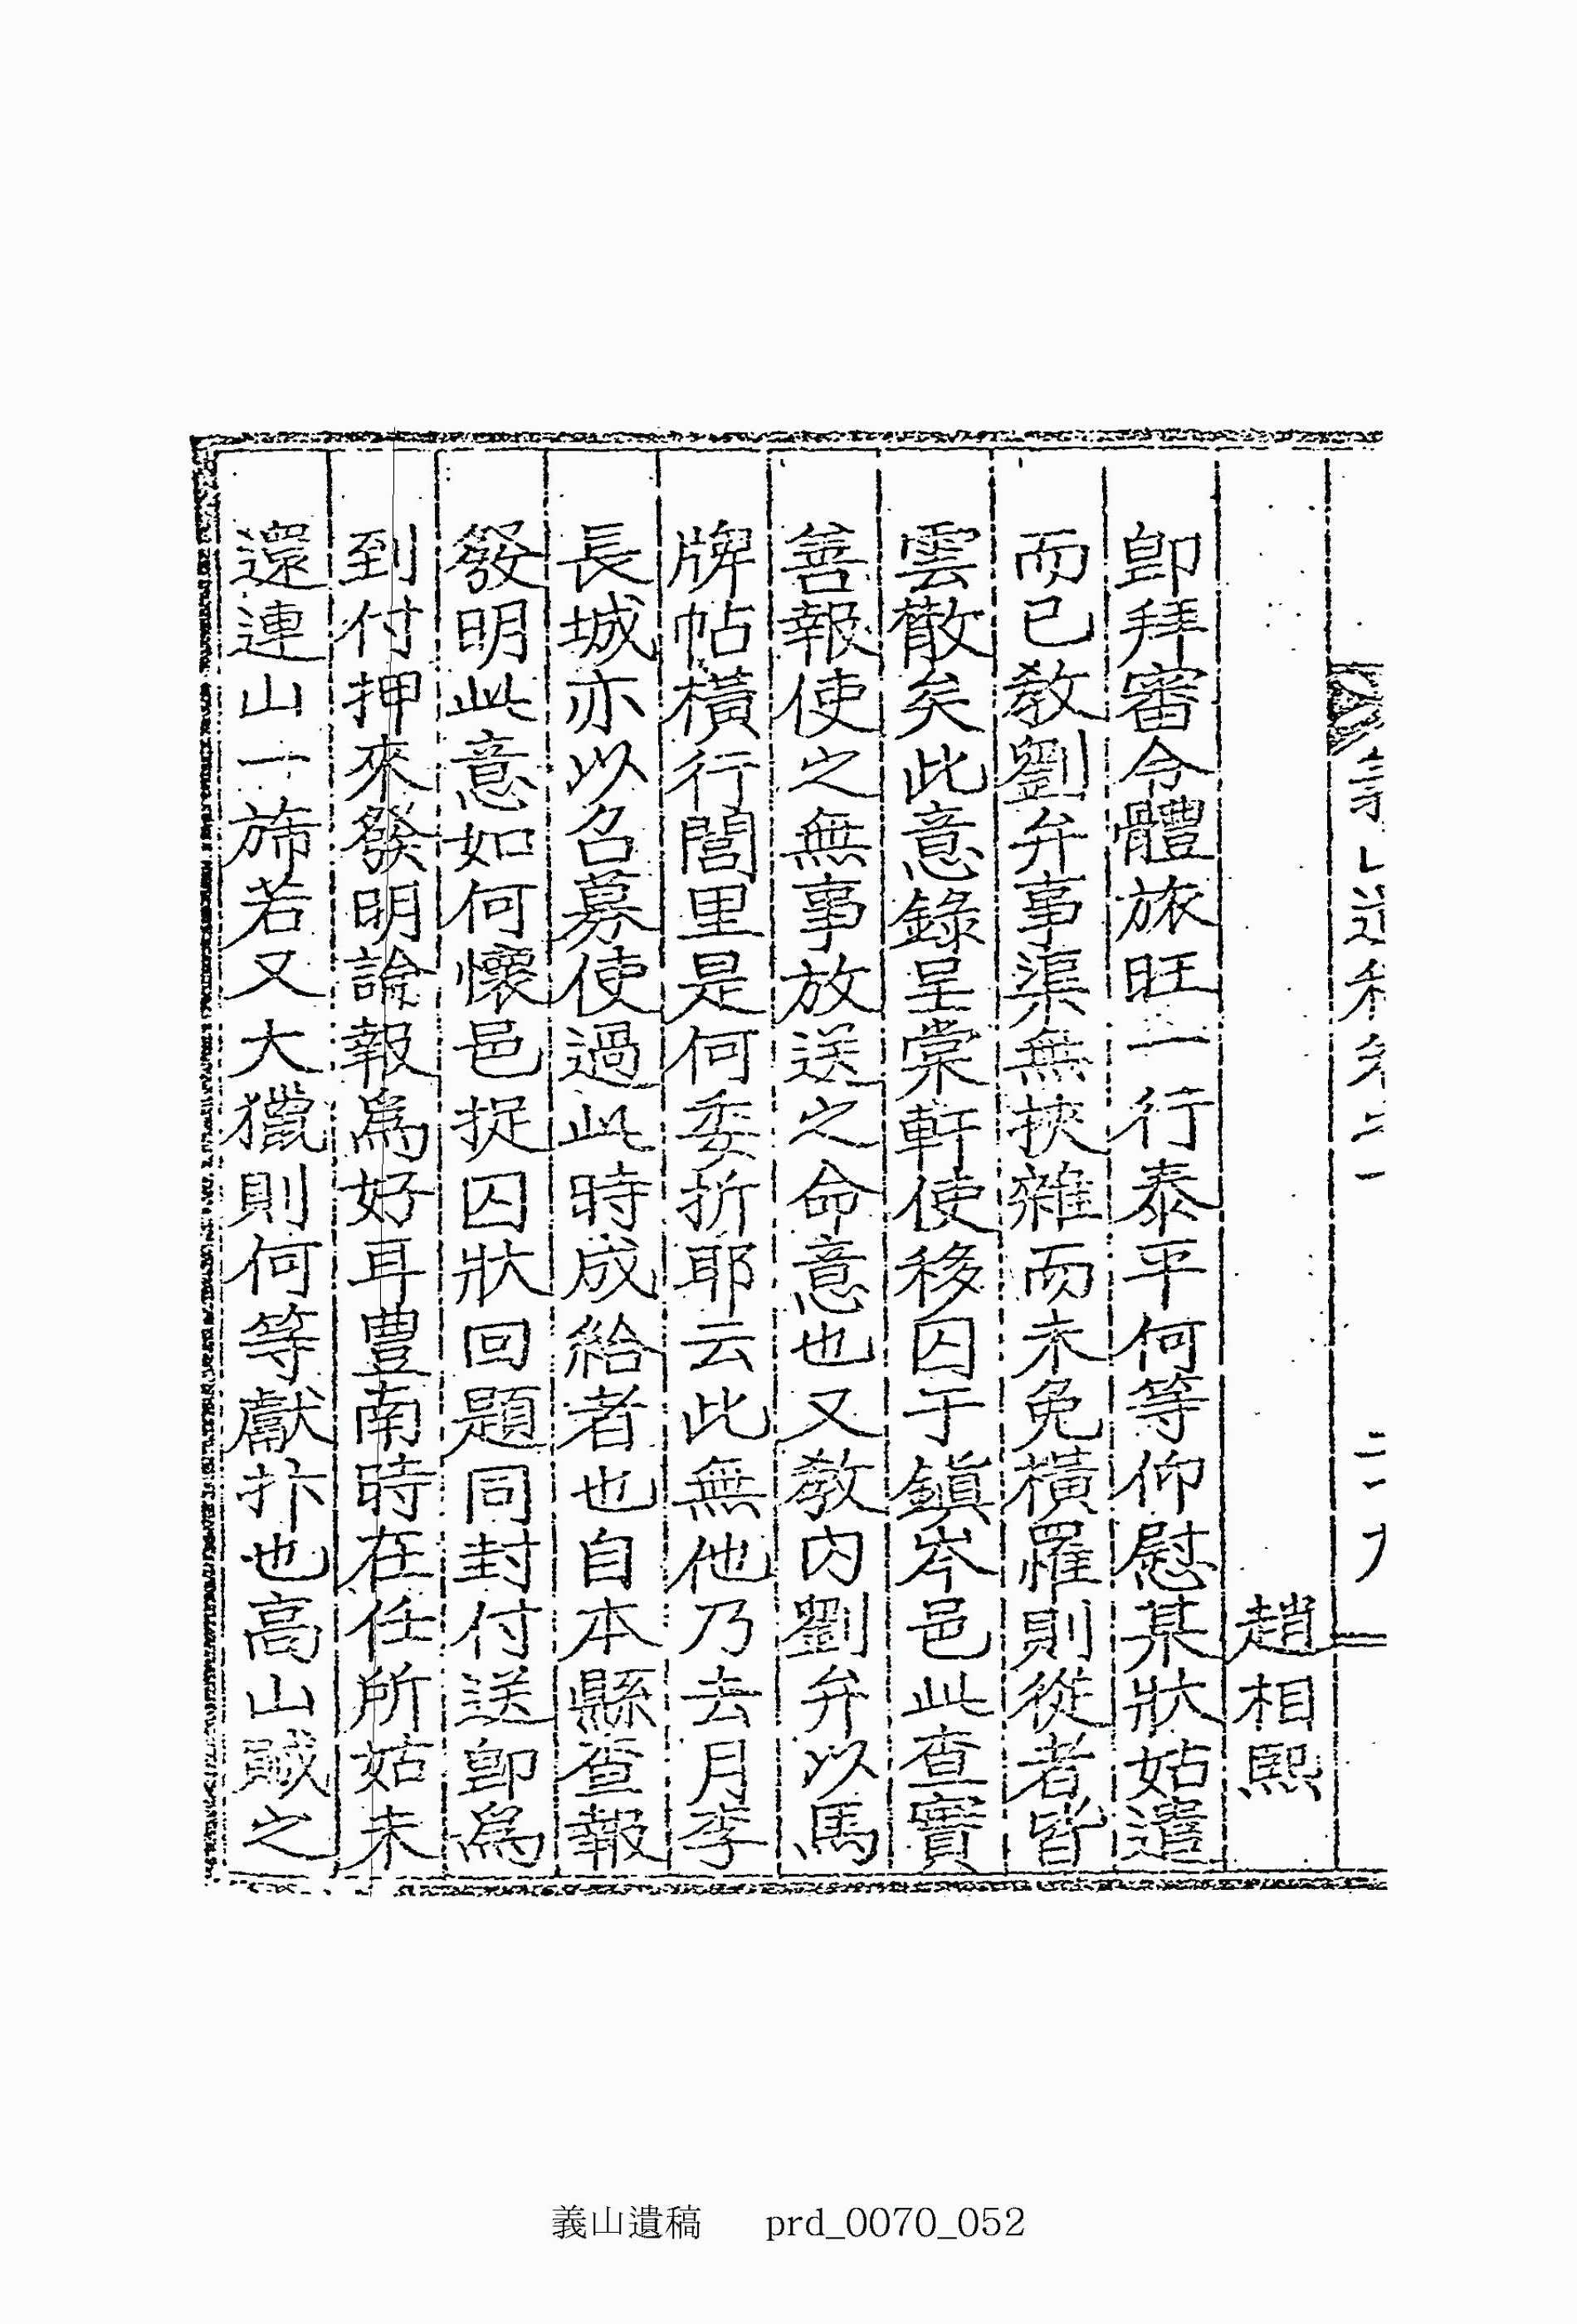 趙相熙
卽拜審令體旅旺一行泰平何等仰慰某狀姑遣
而已敎劉弁事渠無挾雜而未免橫羅則從者皆
雲散矣此意錄呈棠軒使移囚于鎭岑邑此查實
善報使之無事放送之命意也又敎內劉弁以馬
牌帖橫行閭里是何委折耶云此無他乃去月李
長城亦以召募使過此時成給者也自本縣查報
發明此意如何懷邑捉囚狀回題同封付送卽爲
到付押來發明論報爲好耳豊南時在任所姑未
還連山一旆若又大獵則何等獻抃也高山賊之
義山遺稿 prd_0070_052